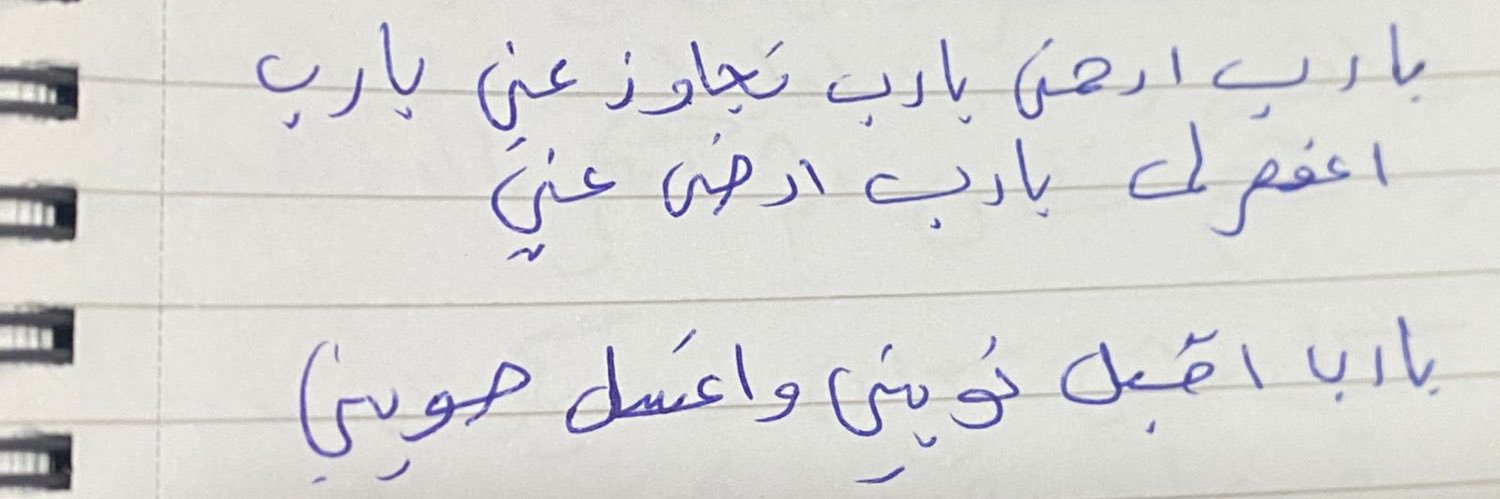 يارب ارحمنى يارب تجاوز عني يارب
اغفر لى يارب ارضى عني
يارب اقبل توبتي واغسل حوبتي